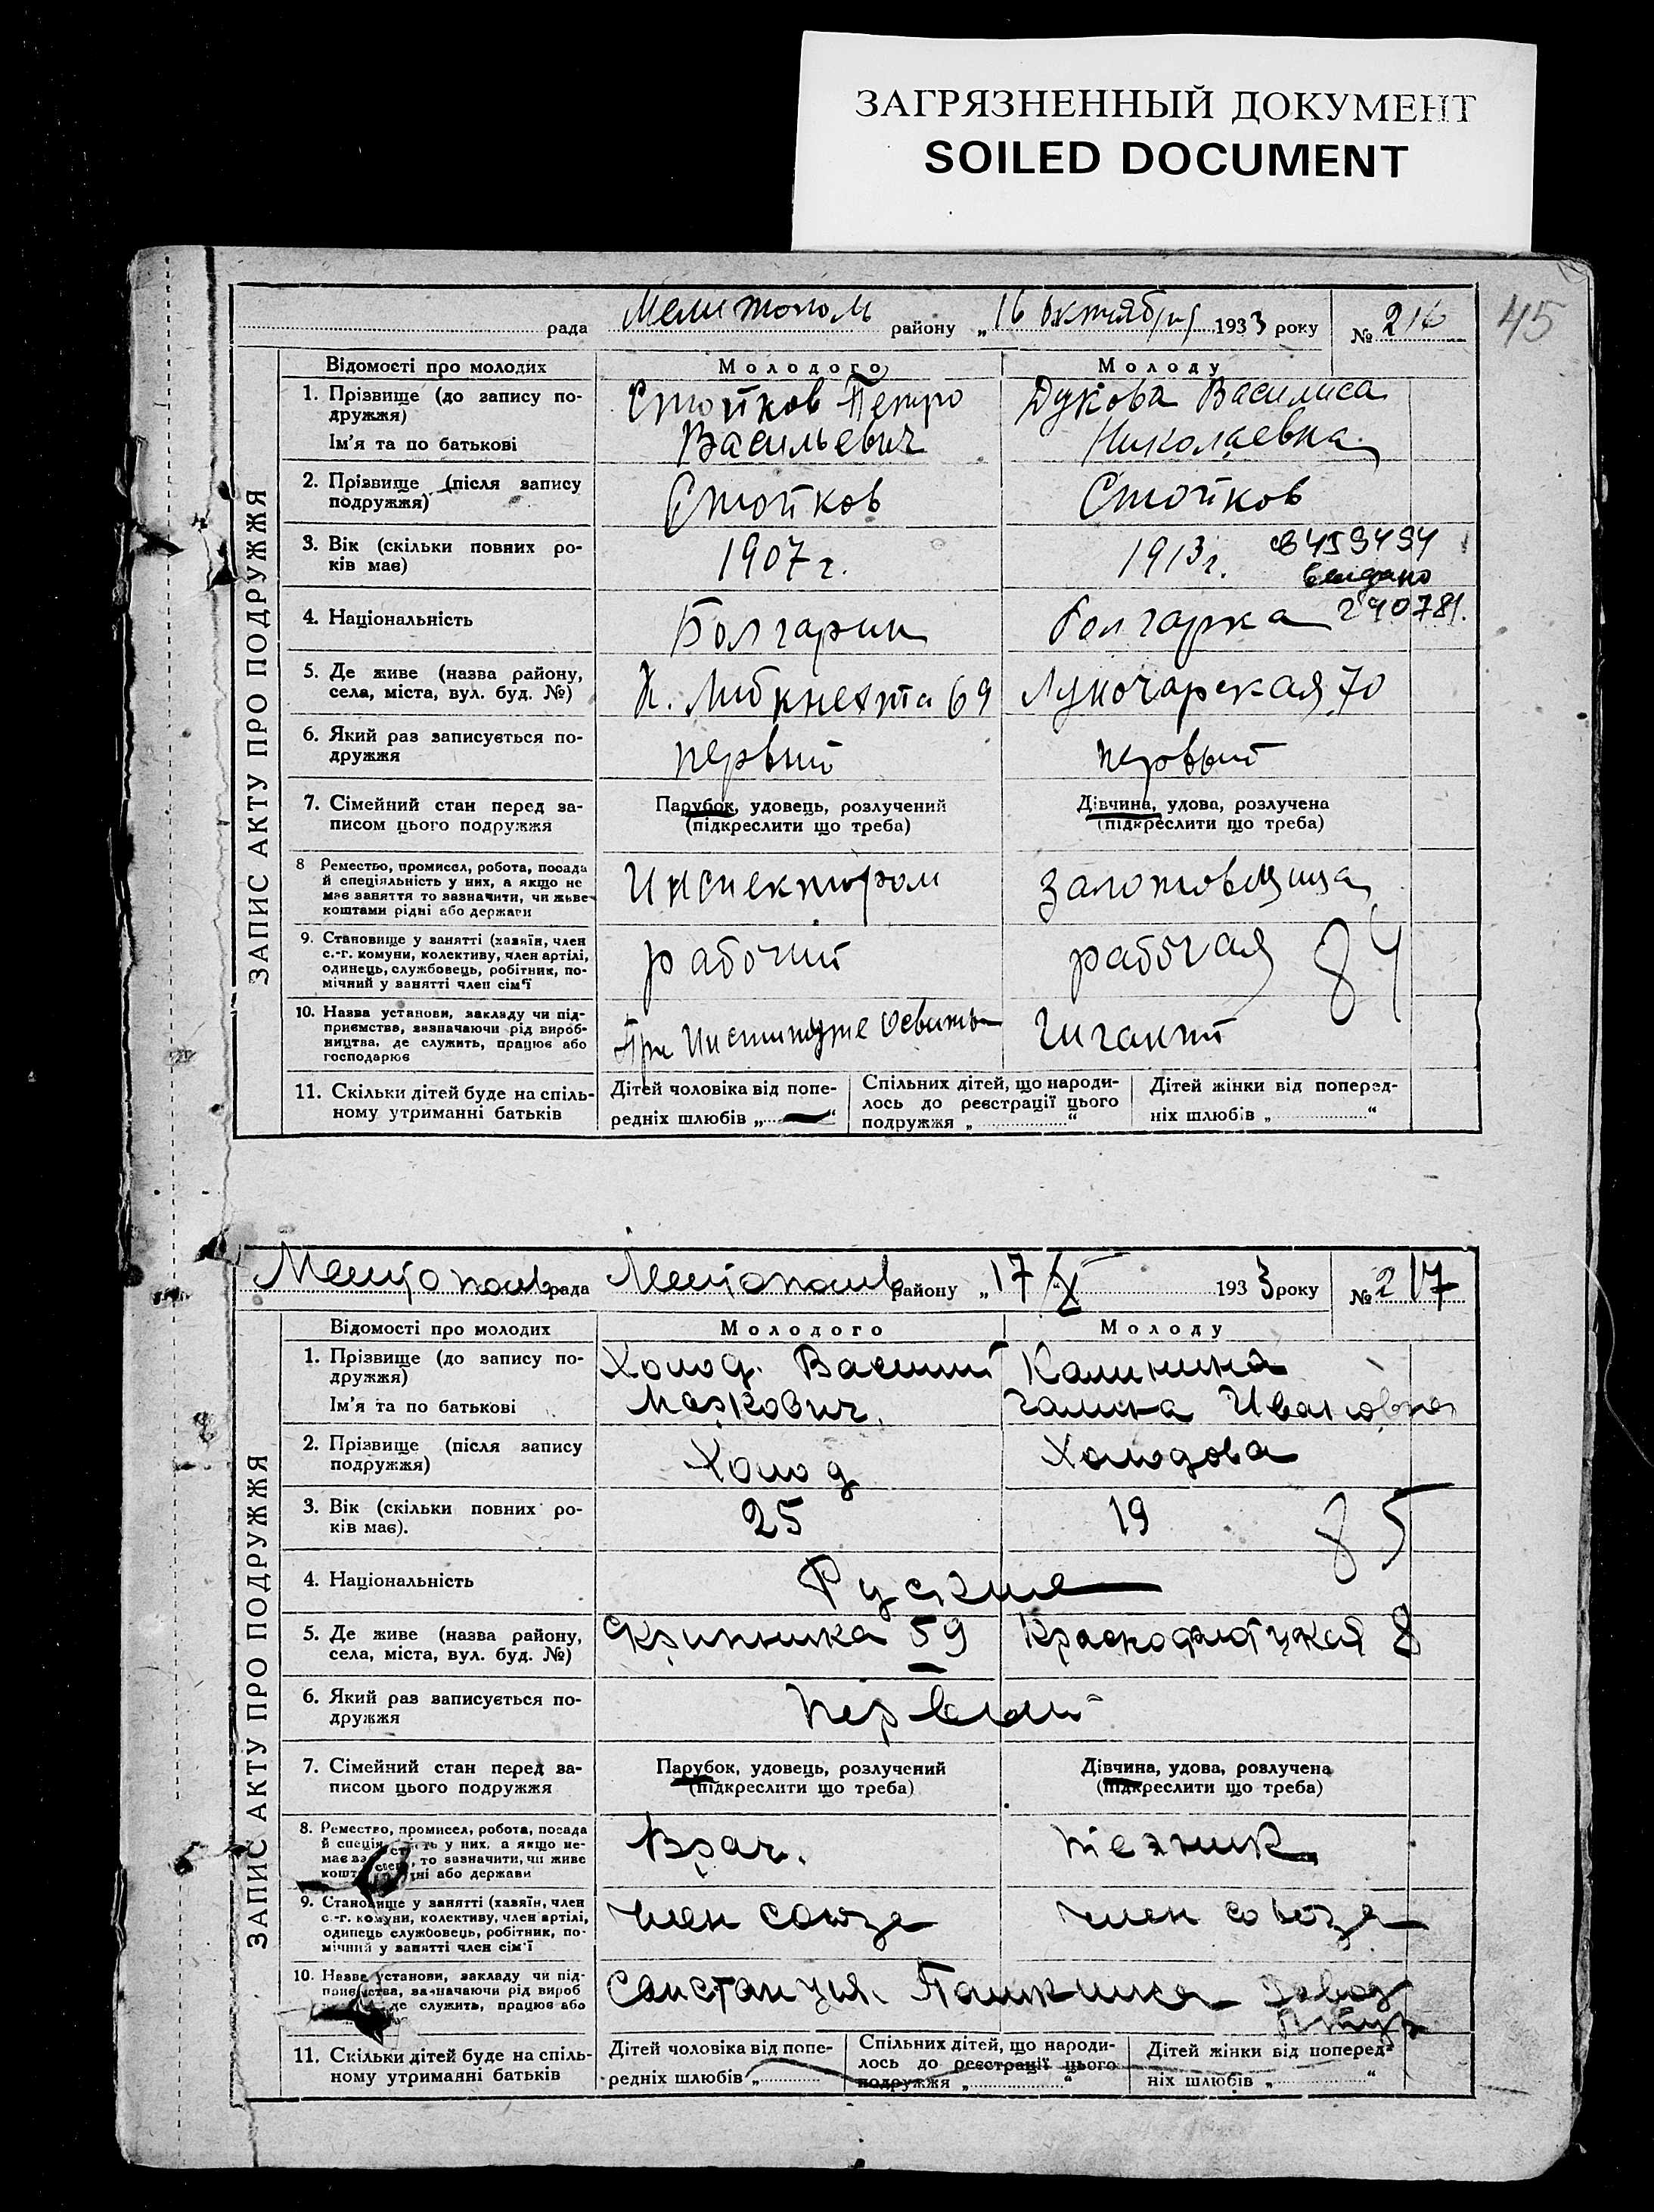 ЗАГРЯЗНЕННЫЙ ДОКУМЕНТ
SOILED DOCUMENT
45
рада Мелитополь району „16 октября 1933 року № 216
ЗАПИС АКТУ ПРО ПОДРУЖЖЯ
Відомості про молодих Молодого Молоду
1. Прізвище (до запису по-
дружжя)
Ім'я та по батькові
Стойков Петро
Васильевич
Дукова Василиса
Николаевна
2. Прізвище (після запису
подружжя)
Стойков Стойков
3. Вік (скільки повних ро-
ків має)
1907 г. 1913 г.
459494
выдано
240781.
4. Національність Болгарин болгарка
5. Де живе (назва району,
села, міста, вул. буд. №)
К. Либкнехта 69 Луночарская 70
6. Який раз записується по-
дружжя
первый первый
7. Сімейний стан перед за-
писом цього подружжя
Парубок, удовець, розлучений
(підкреслити що треба)
Дівчина, удова, розлучена
(підкреслити що треба)
8 Ремество, промисел, робота, посада
й спеціяльність у них, а якщо не
має заняття то зазначити, чи живе
коштами рідні або держави
Инспектором
9. Становище у занятті (хазяїн, член
с.-г. комуни, колективу, член артілі,
одинець, службовець, робітник, по-
мічний у занятті член сім'ї
рабочий рабочая 84
10. Назва установи, закладу чи під-
приємства, зазначаючи рід вироб-
ництва, де служить, працює або
господарює
При Институте Гигант
11. Скільки дітей буде на спіль-
ному утриманні батьків
Дітей чоловіка від попе-
редніх шлюбів „ “
Спільних дітей, що народи-
лось до реєстрації цього
подружжя „ “
Дітей жінки від поперед-
ніх шлюбів „ “
рада району „17 X 1933 року № 217
ЗАПИС АКТУ ПРО ПОДРУЖЖЯ
Відомості про молодих Молодого Молоду
1. Прізвище (до запису по-
дружжя)
Ім'я та по батькові
Холод Василий
Маркович.
Калинина
Галина Ивановна
2. Прізвище (після запису
подружжя)
Холод Холодова
3. Вік (скільки повних ро-
ків має).
25 19 85
4. Національність Руские
5. Де живе (назва району,
села, міста, вул. буд. №)
Скрипника 59 Краснофлотская 8
6. Який раз записується по-
дружжя
первый
7. Сімейний стан перед за-
писом цього подружжя
Парубок, удовець, розлучений
(підкреслити що треба)
Дівчина, удова, розлучена
(підкреслити що треба)
8. Ремество, промисел, робота, посада
й у них, а якщо не-
має то зазначити, чи живе
або держави
Врач. техник
9. Становище у занятті (хазяїн, член
с.-г. комуни, колективу, член артілі,
одинець службовець, робітник, по-
мічний у занятті член сім'ї
член союза член союза
10. Назва установи, закладу чи під-
приємства, зазначаючи рід вироб
де служить, працює або
Санстанция. завод
11. Скільки дітей буде на спіль-
ному утриманні батьків
Дітей чоловіка від попе-
редніх шлюбів „
Спільних дітей, що народи-
лось до реєстрації цього
подружжя „ “
Дітей жінки від поперед-
ніх шлюбів „ “